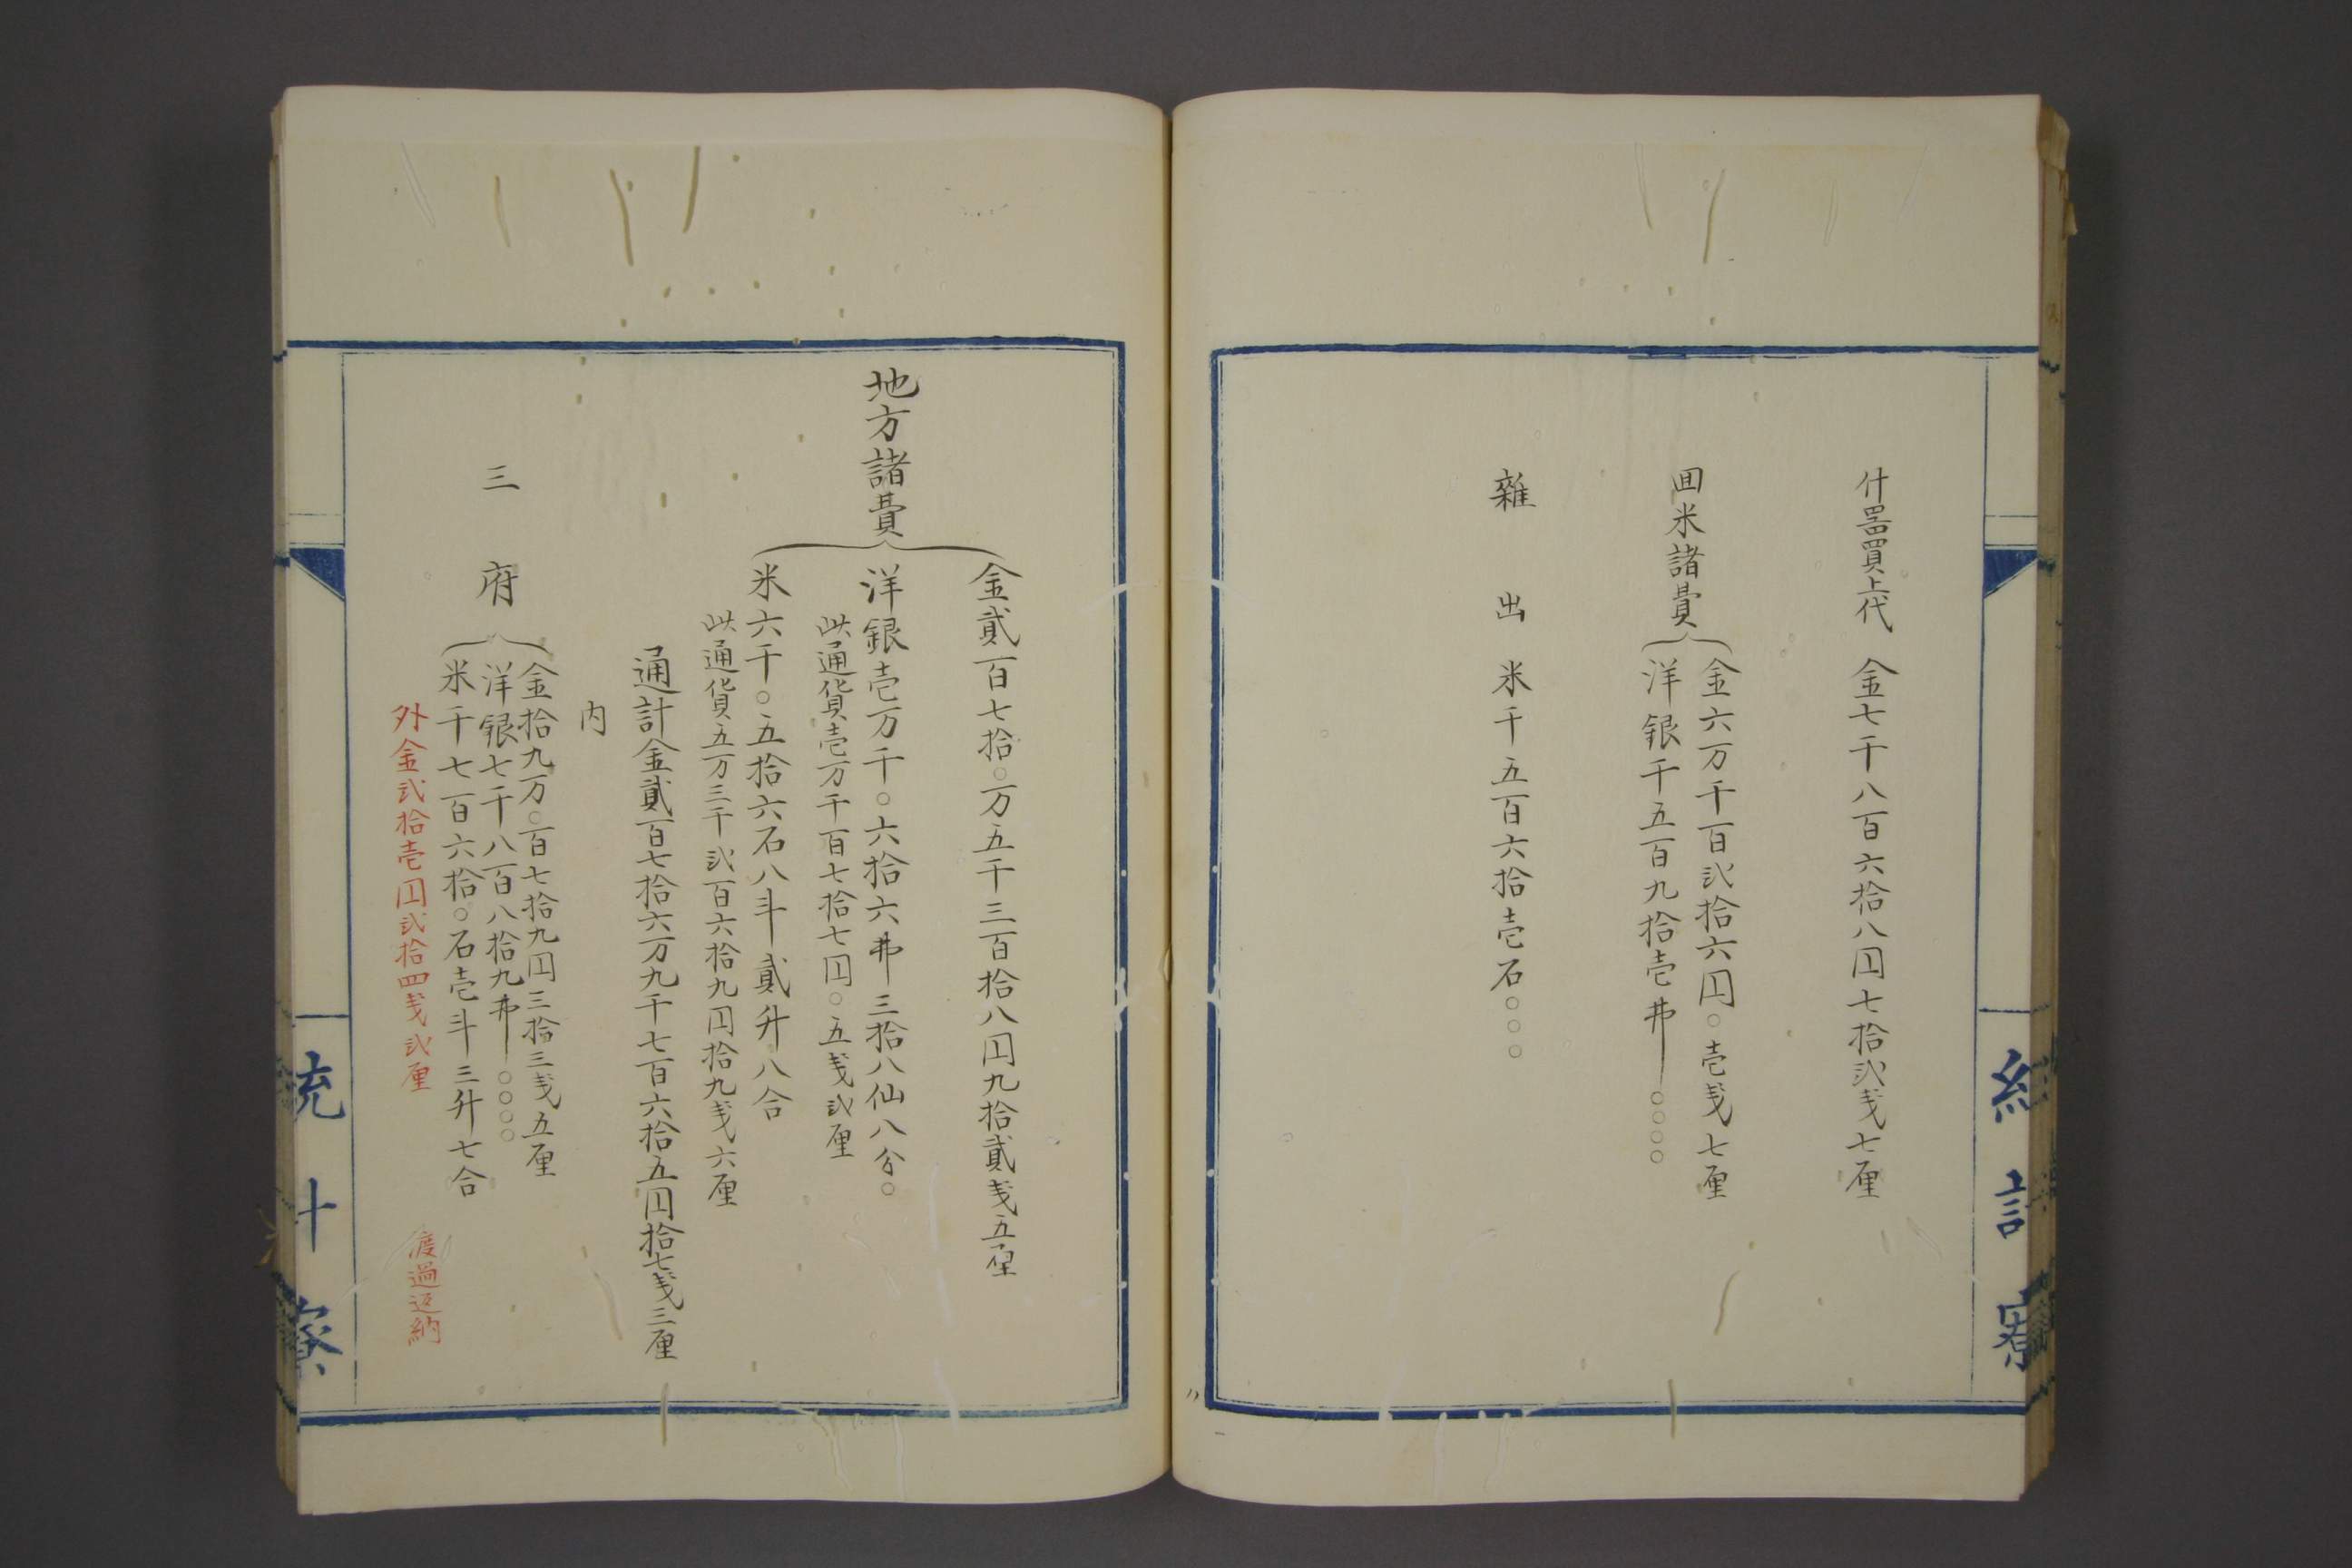 什器買上代　金七千八百六拾八円七拾弐銭七厘
囬米諸費
金六万千百弐拾六円〇壱銭七厘
洋銀千五百九拾壱弗〇〇〇〇
雜出　米千五百六拾壱石〇〇〇
地方諸費
金貳百七拾〇万五千三百拾八円九拾貳銭五厘
洋銀壱万千〇六拾六弗三拾八仙八分〇
此通貨壱万千百七拾七円〇五銭弐厘
米六千〇五拾六石八斗貳升八合
此通貨五万三千弐百六拾九円拾九銭六厘
通計金貳百七拾六万九千七百六拾五円拾七銭三厘
内
三府
金拾九万〇百七拾九円三拾三銭五厘
洋銀七千八百八拾九弗〇〇〇〇
米千七百六拾〇石壱斗三升七合
外金弐拾壱円弐拾四銭弐厘　渡過返納
統計寮